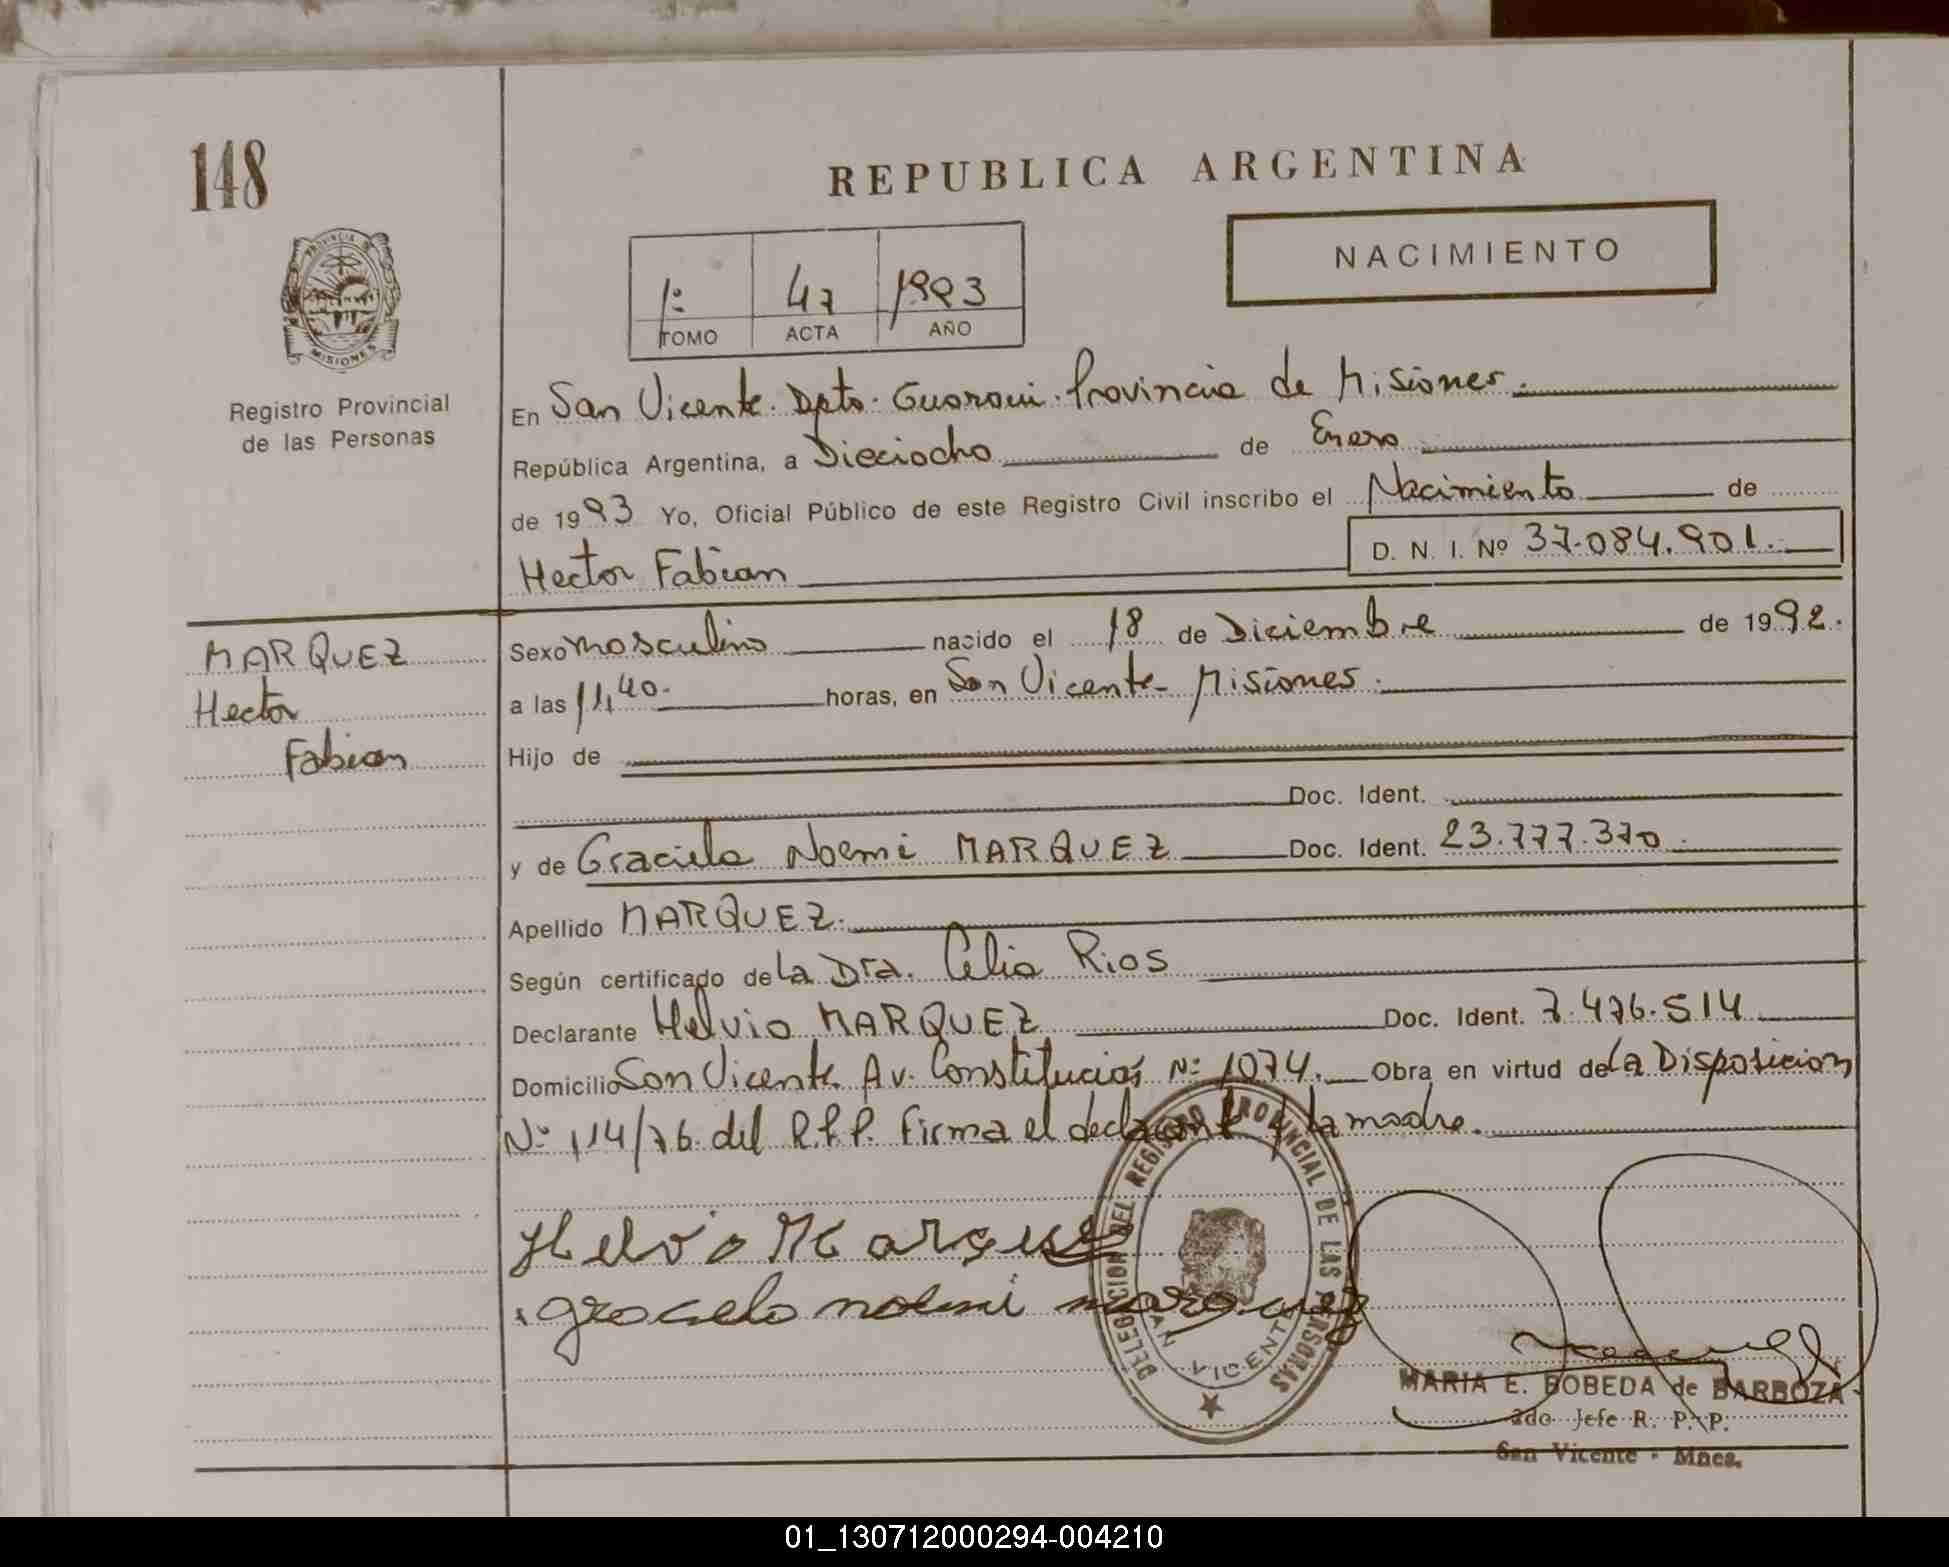 148
REPUBLICA ARGENTINA
NACIMIENTO
PROVINCIA DE
MISIONES
1º 47 1993
TOMO ACTA AÑO
Registro Provincial
de las Personas
En San Vicente. Dpto. Guarani. Provincia de Misiones.
República Argentina, a Dieciocho de Enero
de 1993 Yo, Oficial Público de este Registro Civil inscribo el Nacimiento de
Hector Fabian D. N. I. Nº 37.084.901.
MARQUEZ
Hector
Fabian
Sexo masculino nacido el 18 de Diciembre de 1992.
a las 11,40. horas, en San Vicente- Misiones.
Hijo de
Doc. Ident.
y de Graciela Noemi MARQUEZ Doc. Ident. 23.777.370.
Apellido MARQUEZ.
Según certificado de La Dra. Celia Rios
Declarante Helvio MARQUEZ Doc. Ident. 7.476.514
Domicilio San Vicente. Av. Constitución Nº 1074. Obra en virtud de La Disposicion
Nº 114/76. del R.P.P. Firma el declarante y la madre.
Helvio Marques
graciela noemi marquez
DELEGACION DEL REGISTRO PROVINCIAL DE LAS PERSONAS
SAN VICENTE
MARIA E. BOBEDA de BARBOZA
2do Jefe R. P. P.
San Vicente - Mnes.
01_130712000294-004210